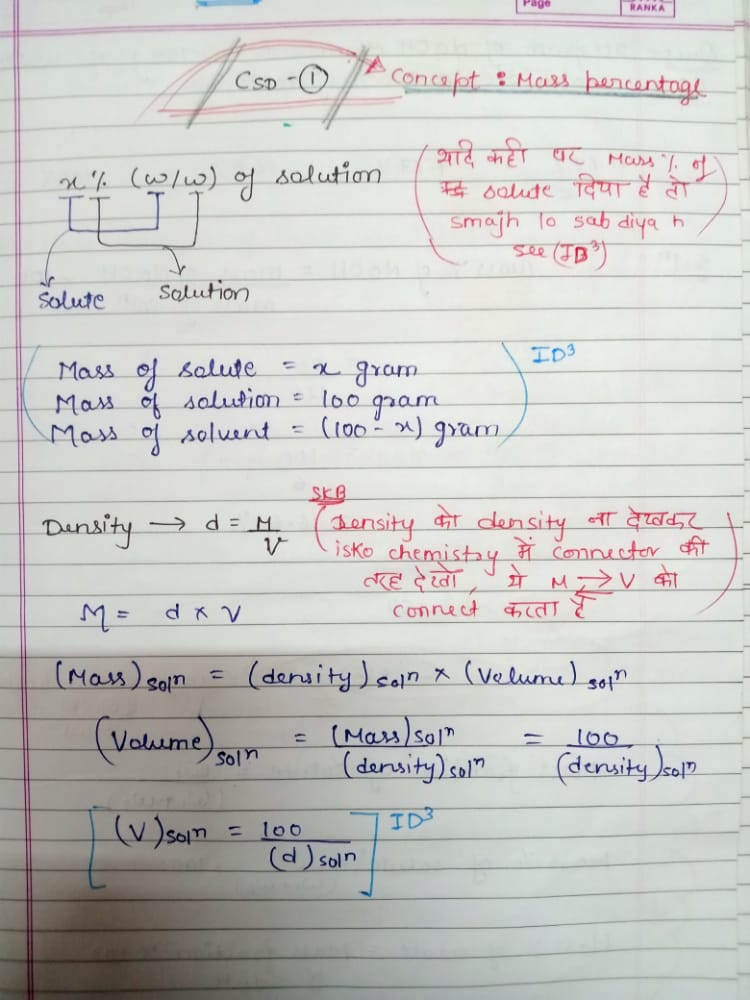 Page
RANKA
CSD - ①
Concept : Mass percentage
x% (w/w) of solution
Solute
Solution
( यदि कही पर Mass % of
solute दिया है तो
smajh lo sab diya h
see (ID³) )
( Mass of solute = x gram
Mass of solution = 100 gram
Mass of solvent = (100 - x) gram ) ID³
Density → d = M/V
SKB
( Density को density ना देखकर
isko chemistry में connector की
तरह देखो, ये M ⇌ V को
connect करता है )
M = d × V
(Mass)solⁿ = (density)solⁿ × (Volume)solⁿ
(Volume)solⁿ = (Mass)solⁿ/(density)solⁿ = 100/(density)solⁿ
[ (V)solⁿ = 100/(d)solⁿ ] ID³